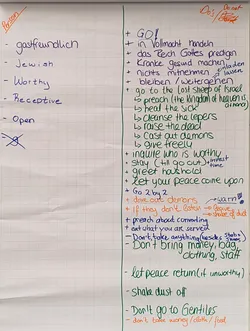 Person
- gastfreundlich
- Jewish
- Worthy
- Receptive
- Open
Do's / Do not
+ GO!
+ in Vollmacht handeln
+ das Reich Gottes predigen
+ Kranke gesund machen
+ nichts mitnehmen
+ bleiben / weitergehen
+ go to the lost sheep of Israel
→ preach (the kingdom of heaven is
→ heal the sick
→ cleanse the lepers
→ raise the dead
→ Cast out demons
→ give freely
+ inquire who is worthy
+ stay (till go out)
+ greet household
+ let your peace come upon
+ Go 2 by 2
+ drive out demons
+ if they don't listen
+ preach about converting
+ eat what you are served
- Don't take anything besides
- Don't bring money, bag,
clothing, staff
- let peace return (if unworthy)
- shake dust off
- Don't go to Gentiles
- don't take money / clothes / food